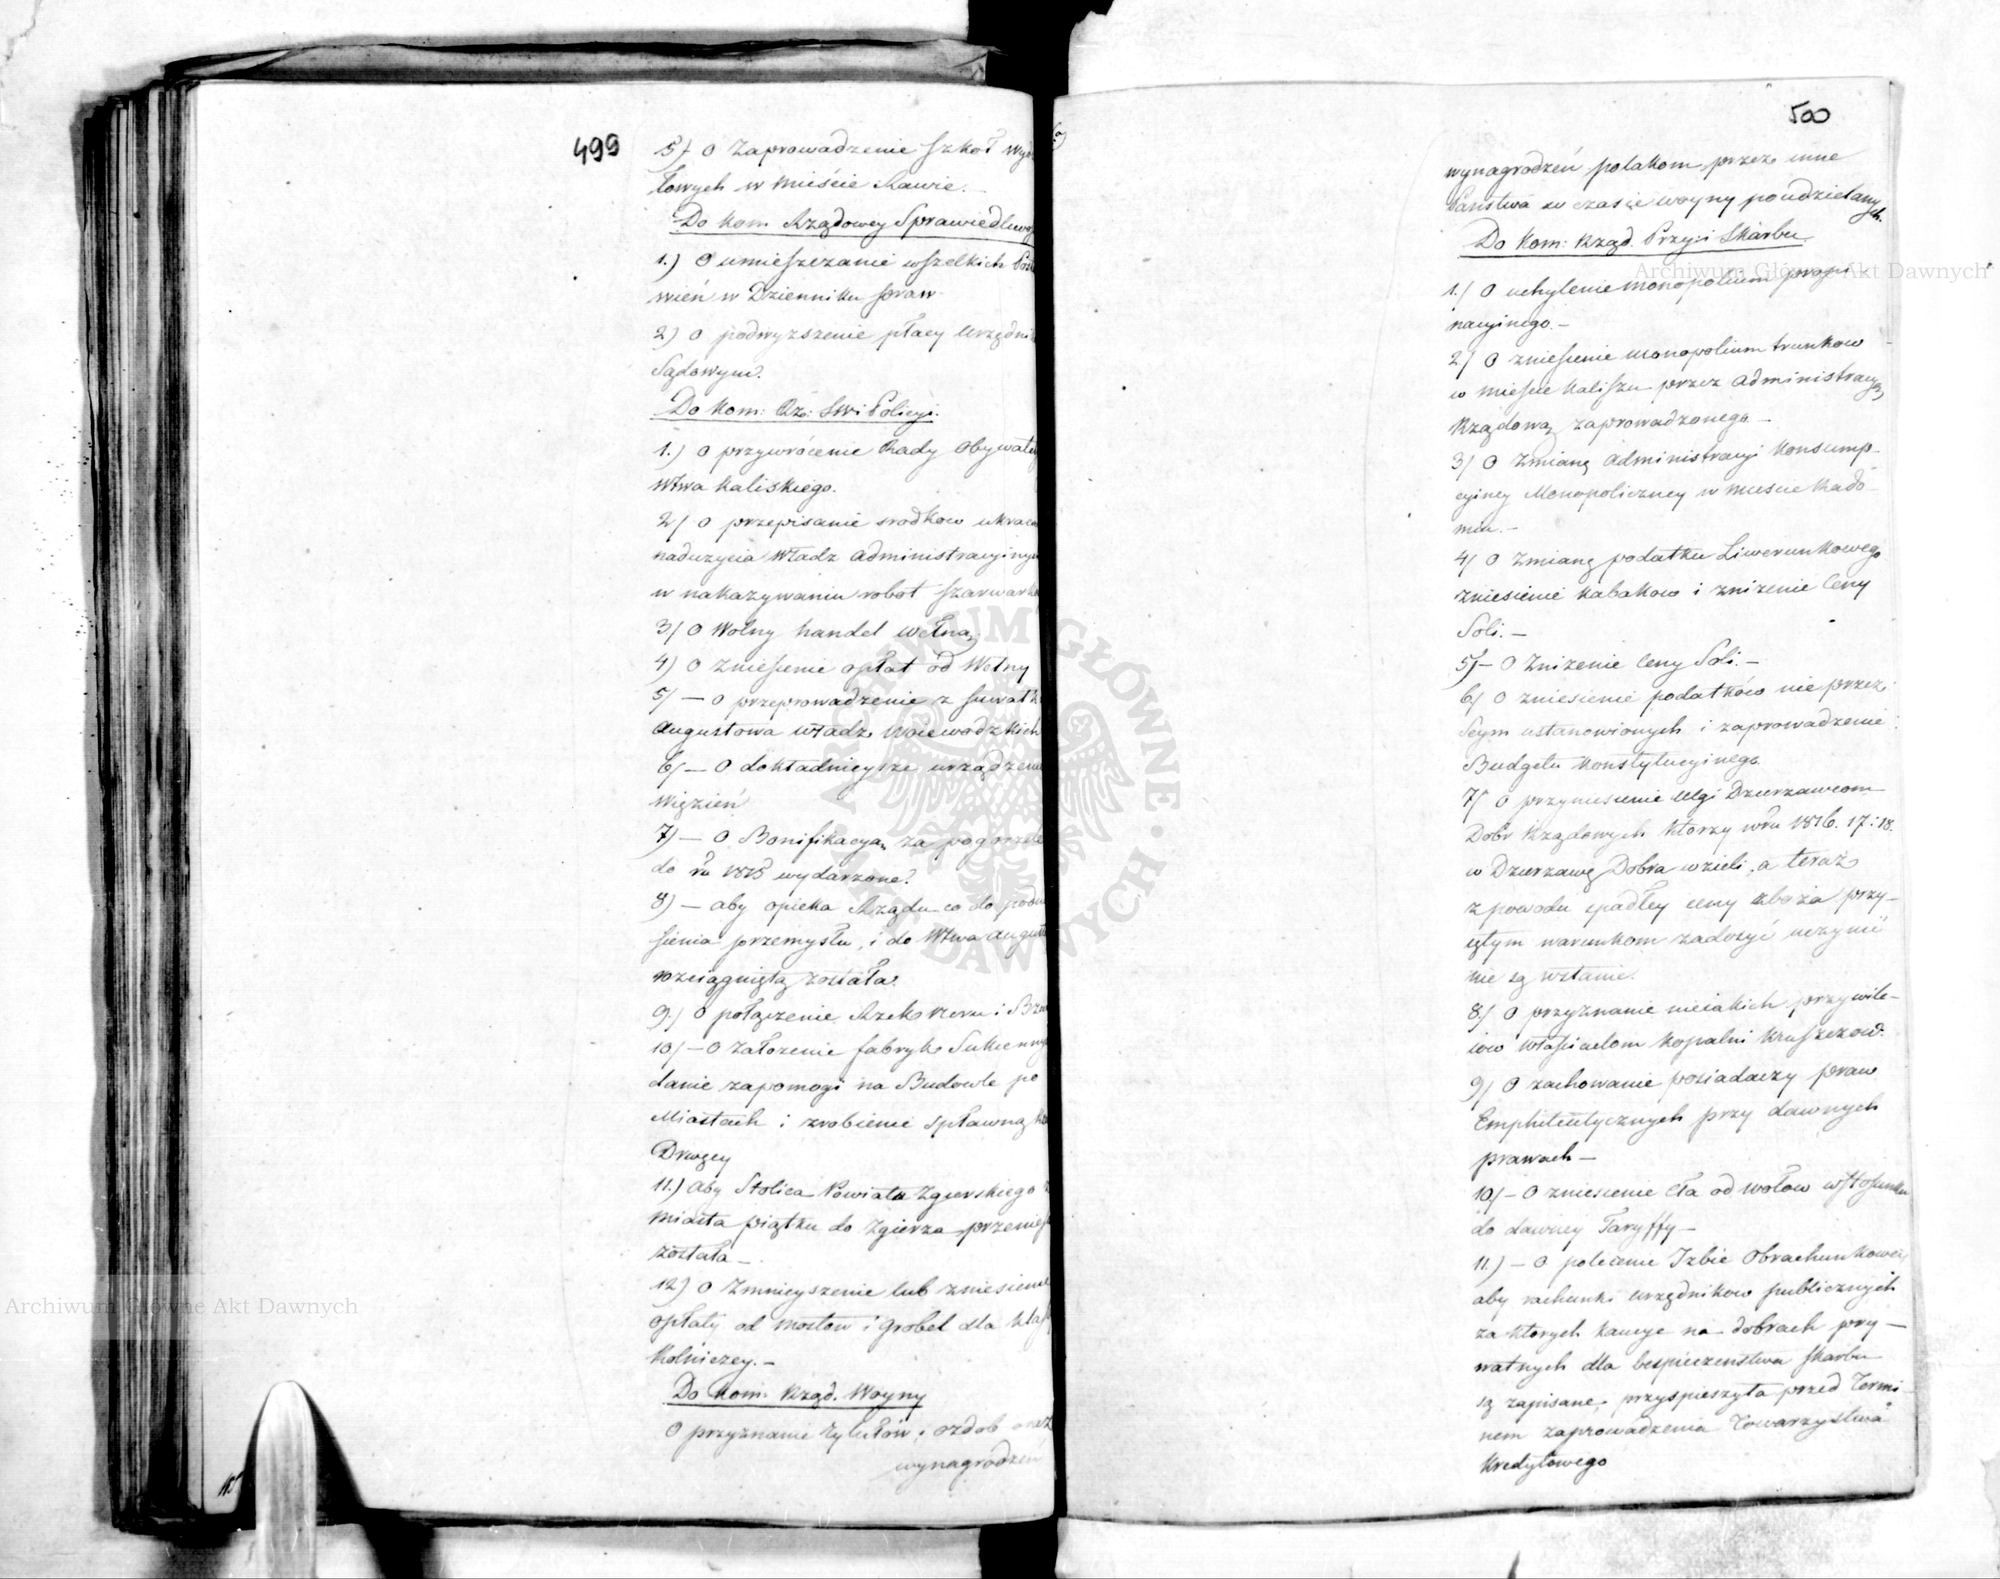 499
5) O Zaprowadzenie szkoł Wyd
łowych w mieście Rawie. –
Do Kom Rządowey Sprawiedliwoś
1.) O umieszczanie wszelkich
wień w Dzienniku praw.
2) O podwyzszenie płacy Urzędni
Sądowym.
Do Kom: Rz: SWi Policyi.
1.) O przywrócenie Rady Obywatel
Wtwa Kaliskiego.
2) O przepisanie srodkow ukrac
naduzycia Władz Administracyinych
w nakazywaniu robot szarwark
3) O Wolny handel wełną
4) O zniesienie opłat od Wełny
5) – O przeprowadzenie z Suwałk
Augustowa władz Woiewodzkich
6) – O dokładnieysze urządzenie
Więzień
7) – O Bonifikacyą za pogorzele
do ru 1815 wydarzone.
8) – aby opieka Rządu co do podn
sienia przemysłu, i do Wtwa Augus
rozciągniętą została.
9.) O połączenie Rzek Neru i Bzu
10) – O założenie fabryk Sukienny
danie zapomogi na Budowle po
Miastach i zrobienie spławną
Drugey
11.) Aby Stolica Powiatu Zgierskiego z
Miasta Piątku do Zgierza przenies
została –
12) O Zmnieyszenie lub zniesienie
opłaty od mostow i grobel dla klas
Rolniczey. –
Do Kom: Rząd. Woyny
O przyznanie tytułów i ozdob oraz
wynagrodzeń
500
wynagrodzeń polakom przez inne
Państwa w czasie woyny poudzielanych.
Do Kom: Rząd. Przy: i Skarbu
1.) O uchylenie monopolium propi
nacyinego. –
2) O zniesienie monopolium trunkow
w mieście Kaliszu przez Administracyą
Rządową zaprowadzonego –
3) O Zmianę Administracyi Konsump-
cyiney Monopoliczney w miescie Rado-
miu. –
4) O Zmianę podatku Liwerunkowego
zniesienie Kabakow i znizenie Ceny
Soli. –
5) – O Znizenie Ceny Soli. –
6) O zniesienie podatków nie przez
Seym ustanowionych i zaprowadzenie
Budgetu Konstytucyinego.
7) O przyniesienie Ulgi Dzierzawcom
Dobr Rządowych ktorzy w ru 1816. 17. 18.
w Dzierzawę Dobra wzieli, a teraz
z powodu spadłey ceny zboża przy-
iętym warunkom zadosyć uczynić
nie są wstanie.
8.) O przyznanie nieiakich przywile-
iow Właścicielom Kopalni Kruszcow.
9) O zachowanie posiadaczy praw
Emphiteutycznych przy dawnych
prawach –
10.) – O zniesienie Cła od wołow w stosunku
do dawney Taryffy –
11.) – O polecenie Izbie Obrachunkowei
aby rachunki urzędnikow publicznych
za ktorych kaucye na dobrach pry-
watnych dla bespieczenstwa Skarbu
są zapisane przyspieszyła przed Termi-
nem zaprowadzenia Towarzystwa
Kredytowego
Archiwum Główne Akt Dawnych
Archiwum Główne Akt Dawnych
ARCHIWUM GŁÓWNE AKT DAWNYCH